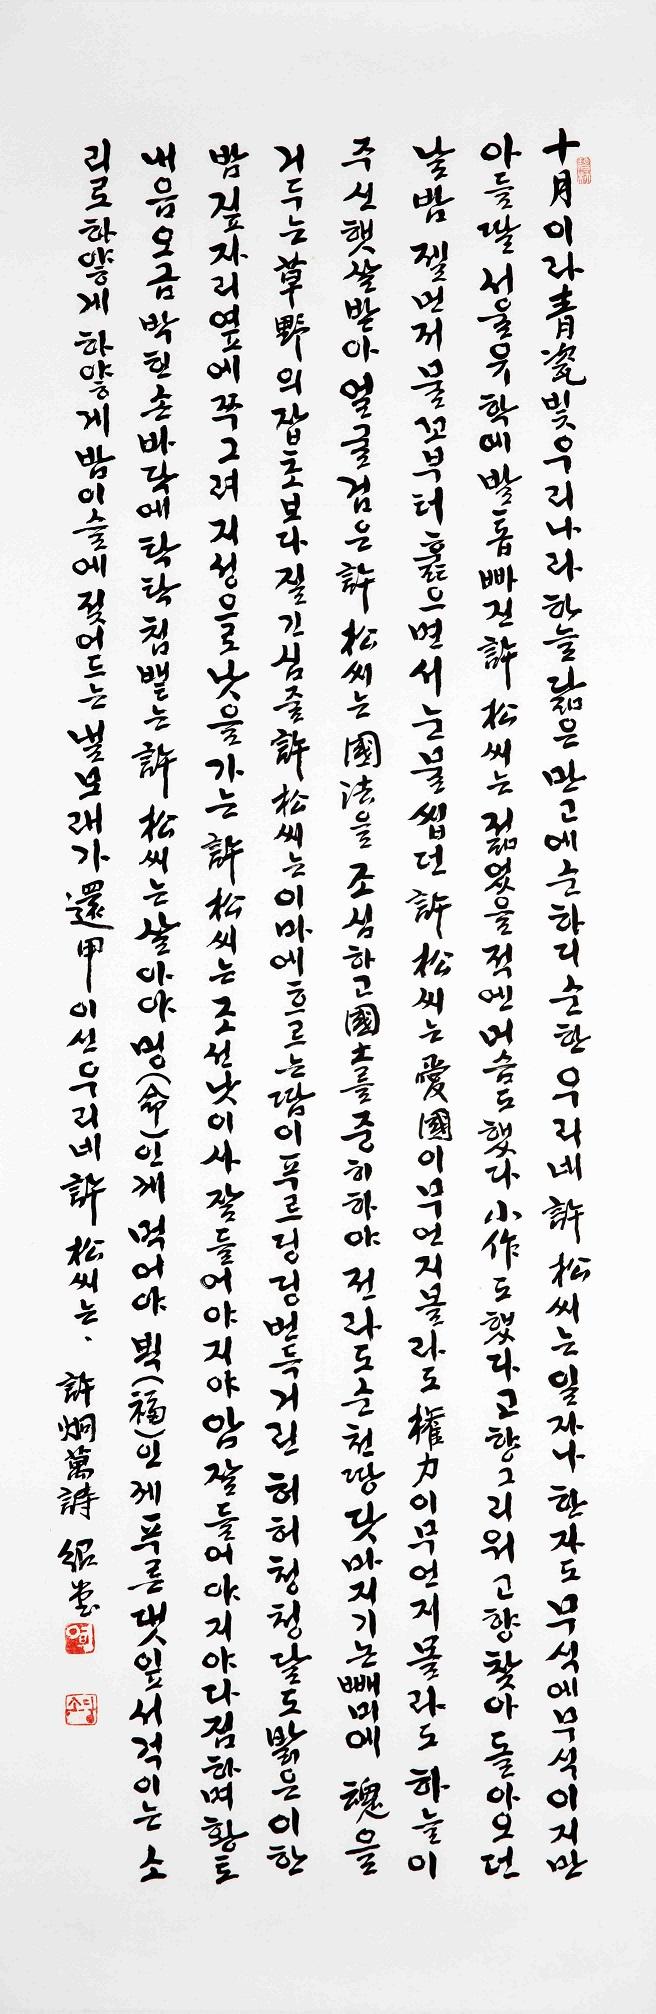 十月이라 青瓷빛 우리나라 하늘 닮은 만고에 순하디 순한 우리네 許松씨는 일자나 한자도 무식에 무식이지만
아들딸 서울유학에 발톱 빠진 許松씨는 젊었을 적엔 머슴도 했다 小作도 했다 고향 그리워 고향 찾아 돌아오던
날밤 젤먼저 물꼬부터 흝으면서 눈물 씹던 許松씨는 愛國이 무언지 몰라도 權力이 무언지 몰라도 하늘이
주신 햇쌀 받아 얼굴 검은 許松씨는 國法을 조심하고 國土를 중히하야 전라도 순천땅 닷마지기 논빼미에 魂을
거두는 草野의 잡초보다 질긴 심줄 許松씨는 이마에 흐르는 땀이 푸르딩딩 번득거린 허허청청 달도 밝은 이 한
밤 짚자리 옆에 쭈그려 지성으로 낫을 가는 許松씨는 조선낫이사 잘 들어야지야 암 잘 들어야지야 다짐하며 황토
내음 오금박힌 손바닥에 탁탁 침 뱉는 許松씨는 살아야 명(命)인께 먹어야 복(福)인께 푸른 댓잎 서걱이는 소
리로 하얗게 하얗게 밤이슬에 젖어드는 낼모래가 還甲이신 우리네 許松씨는、 許炯萬詩 紹堂